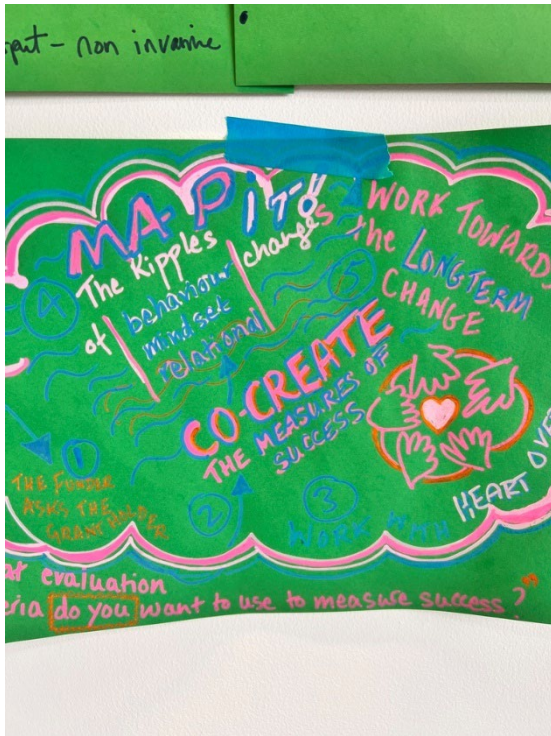 - non invasive
MA-P iT!
The Ripples
of behaviour changes
mindset
relational
4
5
WORK TOWARDS
the LONGTERM
CHANGE
CO-CREATE
THE MEASURES OF
SUCCESS
1
THE FUNDER
ASKS THE
GRANT HOLDER
2
3
WORK WITH
HEART OVE
evaluation
do you want to use to measure success?"